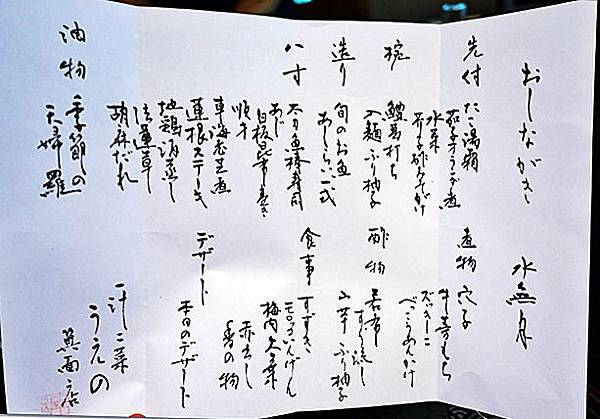 おしながき
水無月
先付 たこ湯霜
茄子オランダ煮
水菜
芥子酢みそがけ
椀 鱧葛打ち
入麺 ふり柚子
造り 旬のお魚
あしらい一式
八寸 太刀魚棒寿司
あじ
白板昆布巻き
順才
車海老芝煮
蓮根ステーキ
地鶏酒蒸し
法蓮草
胡麻だれ
油物 季節の
天婦羅
煮物 穴子
牛蒡もち
ズッキーニ
べっこうあんかけ
酢物 若布
ふり柚子
食事 すずき
モロッコいんげん
赤出し
香の物
デザート 本日のデザート
一汁二菜
うえの
箕面店